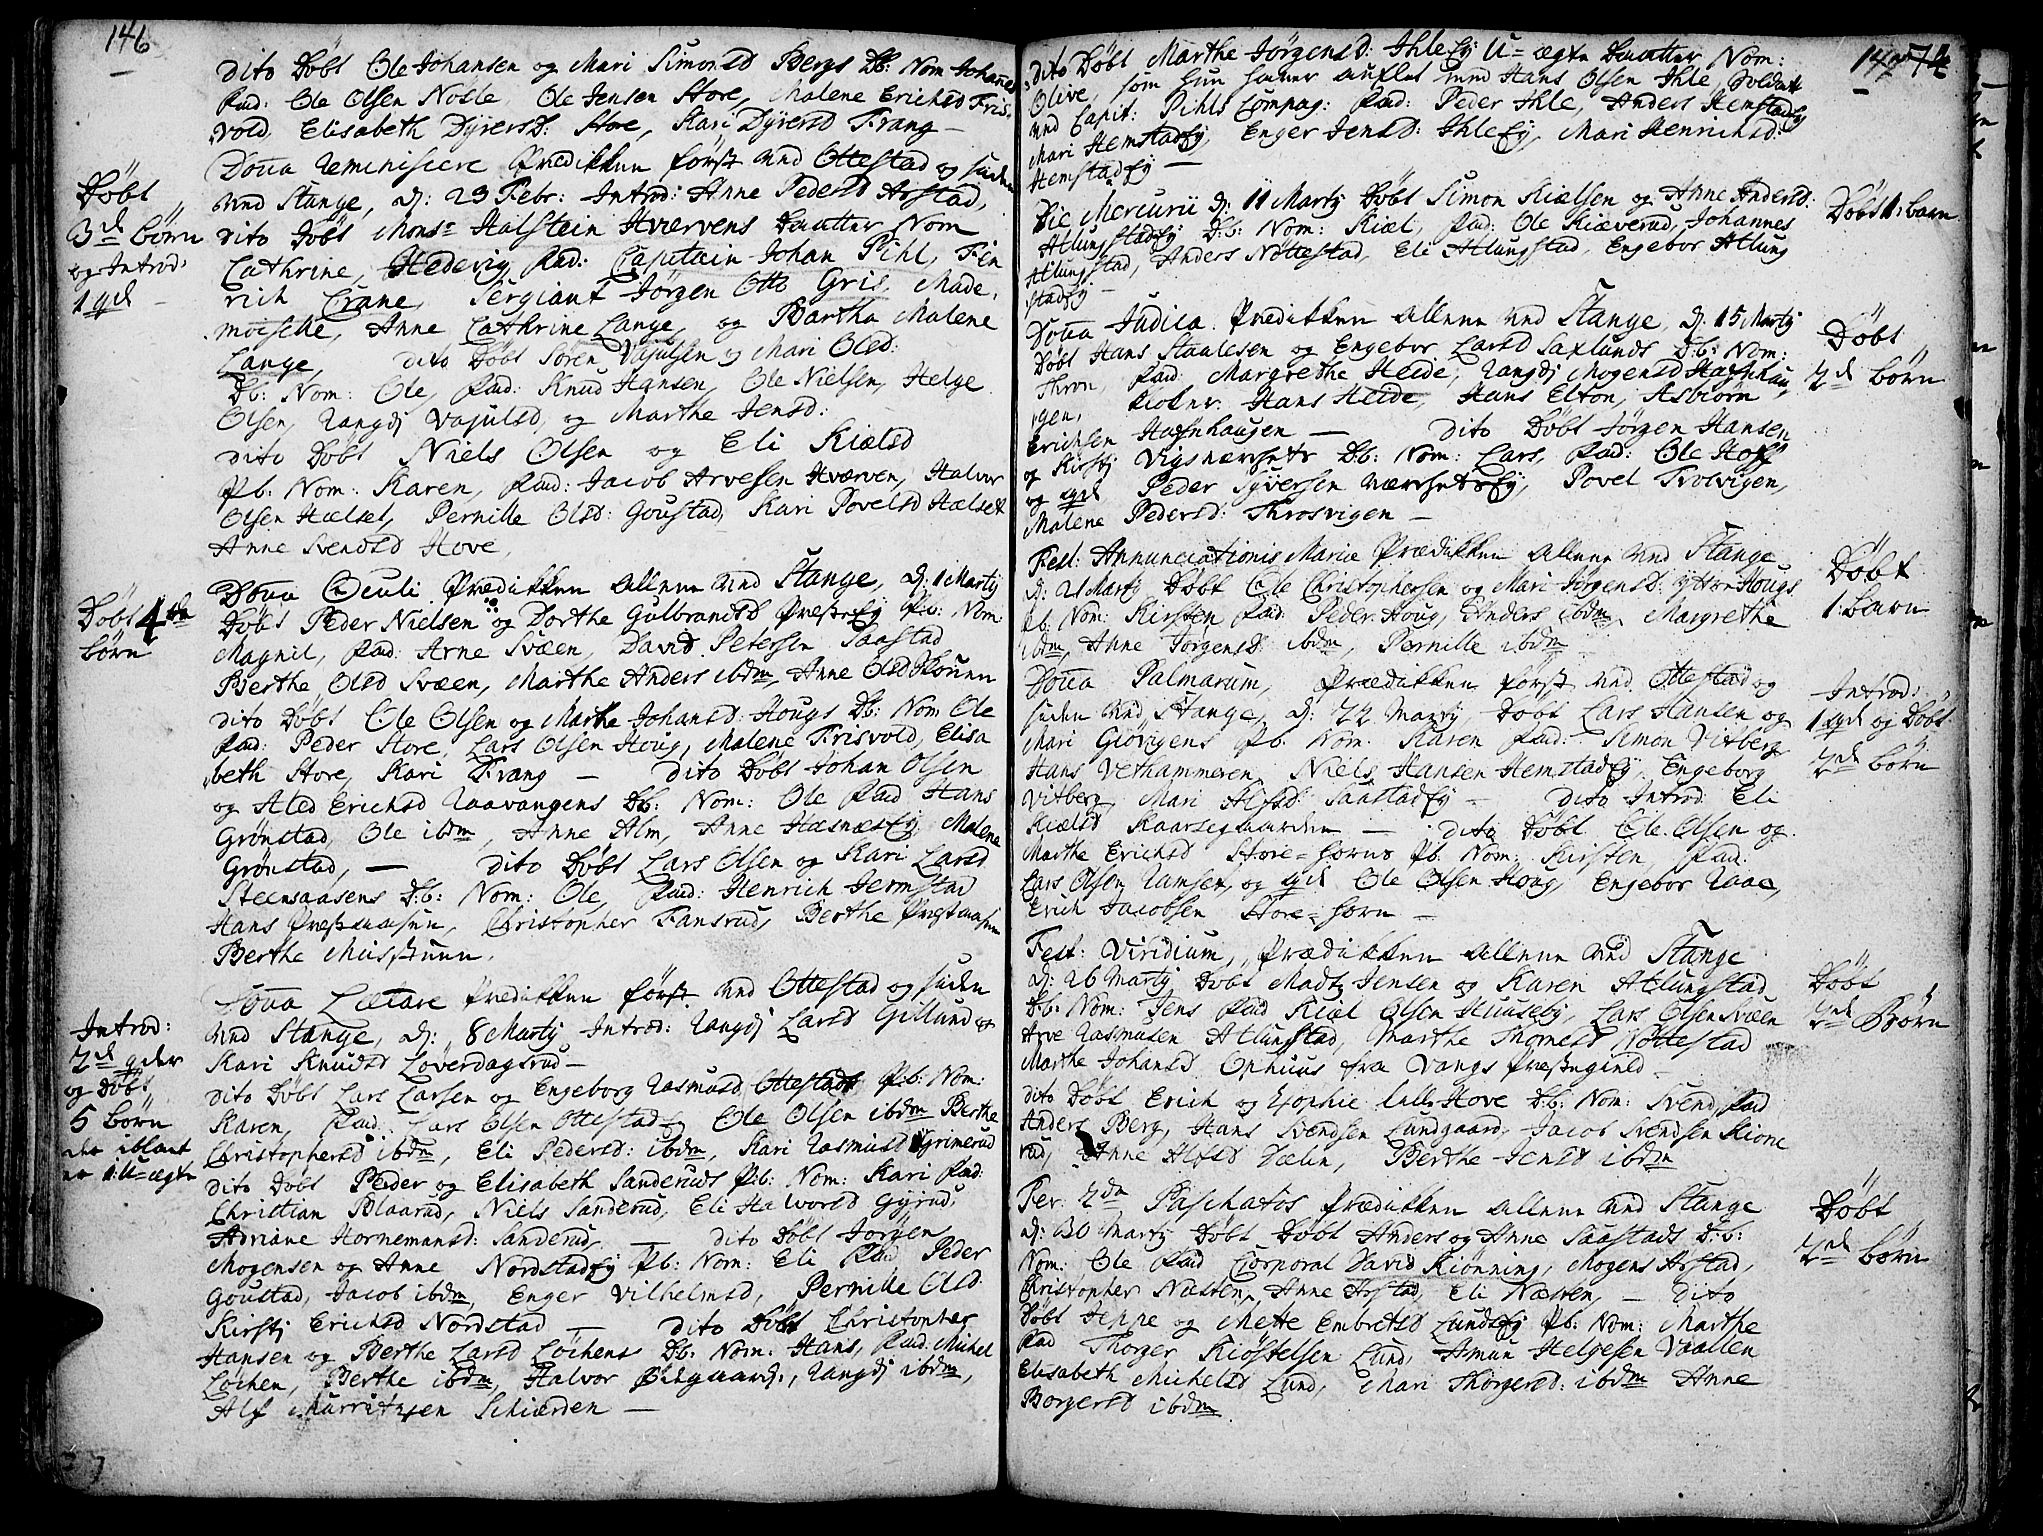 146
dito Døbt Ole Johansen og Mari Simonsd Bergs Db: Nom Johanes
Fad: Ole Olsen Nøsle, Ole Jensen Store, Malene Erichsd Fris
vold, Elisabeth Dyresd: Store, Kari Dyresd Frang —
Døbt
3de børn
og Introd:
1 qd
Doca Reminiscere Prædikken først ved Ottestad og siden
ved Stange, d: 23 Febr: Introd: Anne Pedersd Arstad,
dito Døbt Mons: Halstein Hværvens Daatter Nom
Cathrine, Hedevig, Fad: Capitain Johan Pihl, Fen
rich Crane, Sergiant Jørgen Otto Gris, Made,
moiselle, Anne Cathrine Lange, og Bartha Malene
Lange, dito Døbt Søren Vajulsen og Mari Olsd:
Db: Nom: Ole, Fad: Knud Hansen, Ole Nielsen, Helge
Olsen, Rangdj Vajulsd, og Marthe Jensd:
dito Døbt Niels Olsen og Eli Kielsd
Pb: Nom: Karen, Fad: Jacob Arvesen Hværven, Halvor
Olsen Hælset, Pernille Olsd: Goustad, Kari Povelsd Hælset
Anne Svendsd Hove,
Døbt 4de
børn
Doca Oculi Prædikken allene ved Stange, d: 1 Martij
Døbt Peder Nielsen og Dorthe Gulbrandsd Presteej Pb: Nom
Magnil, Fad: Arne Svæen, David Petersen Saastad
Berthe Olsd Svæen, Marthe Anders ibdm, Anne Olsd Skouen
dito Døbt Ole Olsen og Marthe Johansd: Hougs Db: Nom Ole
Fad: Peder Store, Lars Olsen Houg, Malene Frisvold, Elisa
beth Store, Kari Frang — dito Døbt Johan Olsen
og Aled Erichsd Raavangens Db: Nom: Ole Fad Hans
Grønstad, Ole ibdm, Anne Alm, Anne Hæsnesej Malene
Grønstad, — dito Døbt Lars Olsen og Kari Larsd
Steensaasens Db: Nom: Ole, Fad: Henrich Jermstad
Hans Prestaasen, Christopher Fansrud, Berthe Prestaasen
Berthe
Introd:
2de qder
og Døbt
5 børn
der iblant
er 1: U-ægte
Doca Lætare Prædikken først ved Ottestad og siden
ved Stange, d: 8 Martij Introd: Rangdj Larsd Gillund og
Kari Knudsd Løverdagsrud —
dito Døbt Lars Larsen og Engeborg Rasmusd Ottestads Pb: Nom:
Karen, Fad: Lars Olsen Ottestad, Ole Olsen ibdm Berthe
Christophersd ibdm, Eli Pedersd: ibdm, Kari Rasmusd Grimerud
dito Døbt Peder og Elisabeth Sanderuds Pb: Nom: Kari Fad:
Christian Blaarud, Niels Sanderud, Eli Halvorsd Gyrud
Adriane Hornemansd: Sanderud — dito Døbt Jørgen
Mogensen og Anne Nordstadej Pb: Nom: Eli Fad Peder
Goustad, Jacob ibdm, Enger Vilhelmsd, Pernille Olsd
Kirstj Erichsd Nordstad — dito Døbt Christopher
Hansen og Berthe Larsd Løchens Db: Nom: Hans, Fad: Michel
Løchen, Berthe ibdm, Halvor, Rangdj ibdm,
Alf Murritzen Schierden —
147
dito Døbt Marthe Jørgensd: Ihleej U-ægte Daatter Nom:
Olive, som hun haver auflet med Hans Olsen Ihle, Soldat
ved Capit: Pihls Compag: Fad: Peder Ihle, Anders Hemstadej
Mari Hemstadej, Enger Jensd: Ihleej, Mari Henrichsd:
Hemstadej —
Døbt 1: barn
Die Mercurii d: 11 Martij Døbt Simon Kielsen og Anne Andersd:
Atlungstadej Db: Nom: Kiel, Fad: Ole Kieverud, Johannes
Atlungstad, Anders Nøttestad, Eli Atlungstad, Engebor Atlung
stadej —
Døbt
2de børn
Doca Judica Prædikken allene ved Stange, d: 15 Martij
Døbt Hans Staalesen og Engebor Larsd Saxlunds Db: Nom:
Thron, Fad: Margrethe Heide, Rangdj Mogensd Høsnhau
gen, Kloker Hans Heide, Hans Elton, Asbiørn
Erichsen Høsnhaugen — dito Døbt Jørgen Hansen
og Kirstj Vigsnærsetr Db: Nom: Lars, Fad: Ole Hoff
og qd Peder Syversen Nærsetrej, Povel Trosvigen,
Malene Pedersd: Throsvigen —
Døbt
1: barn
Fest: Annunciationis Mariæ Prædikken allene ved Stange
d: 21 Martij Døbt Ole Christophersen og Mari Jørgensd: ytre Hougs
Pb: Nom: Kirsten Fad: Peder Houg, Anders ibdm, Margrethe
ibdm, Anne Jørgensd: ibdm, Pernille ibdm —
Introd:
1 qd og Døbt
2de børn
Doca Palmarum, Prædikken først ved Ottestad og
siden ved Stange, d: 22 Martij Døbt Lars Hansen og
Mari Giøvigens Pb: Nom: Karen Fad: Simon Vitberg
Hans Vethammeren, Niels Hansen Hemstadej, Engeborg
Vitberg, Mari Alfsd: Saastadej — dito Introd Eli
Kielsd Kaarsegaarden — dito Døbt Ole Olsen og
Marthe Erichsd Store-horns Pb: Nom: Kirsten, Fad:
Lars Olsen Ramsen, og qd Ole Olsen Houg, Engebor Raae,
Erich Jacobsen Store-horn —
Døbt
2de Børn
Fest: Viridium, Prædikken allene ved Stange
d: 26 Martij Døbt Madtz Jensen og Karen Atlungstad
Db: Nom: Jens Fad Kiel Olsen Huuseby, Lars Olsen Svæen
Arve Rasmusen Atlungstad, Marthe Thomesd Nøttestad
Marthe Johansd Ophuus fra Vangs Prestegield —
dito Døbt Erich og Sophie lille Hove Db: Nom: Svend Fad
Anders Berg, Hans Svendsen Lundgaard, Jacob Svendsen Kione
rud, Anne Alfsd Dælin, Berthe Jensd ibdm
Døbt
2de børn
Fer: 2da Paschatos Prædikken allene ved Stange
d: 30 Martij Døbt Døbt Anders og Anne Saastads D:b:
Nom: Ole Fad Corporal David Kiønning, Mogens Arstad,
Christopher Næsten, Anne Arstad, Eli Næsten, — dito
Døbt Jeppe og Mette Embretsd Lundsej Pb: Nom: Marthe
Fad Thorger Kiøstelsen Lund, Amun Helgesen Vaallen
Elisabeth Michelsd Lund, Mari Thorgersd: ibdm Anne
Borgersd ibdm